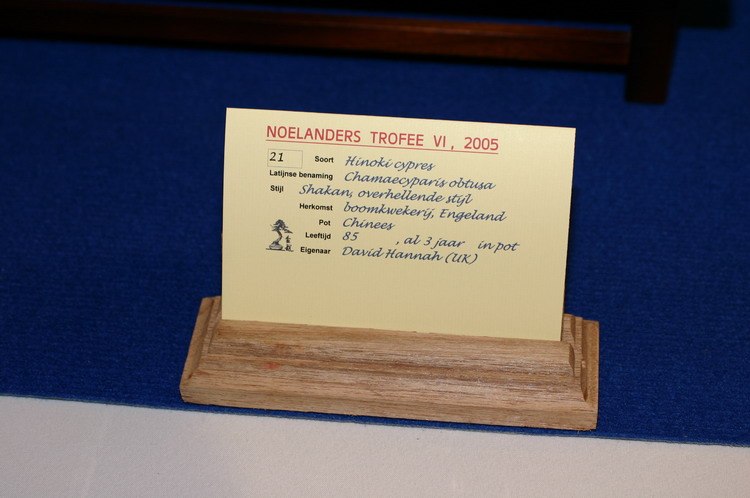 NOELANDERS TROFEE VI, 2005
21 Soort Hinoki cypres
Latijnse benaming Chamaecyparis obtusa
Stijl Shakan, overhellende stijl
Herkomst boomkwekerij, Engeland
Pot Chinees
Leeftijd 85 , al 3 jaar in pot
Eigenaar David Hannah (UK)